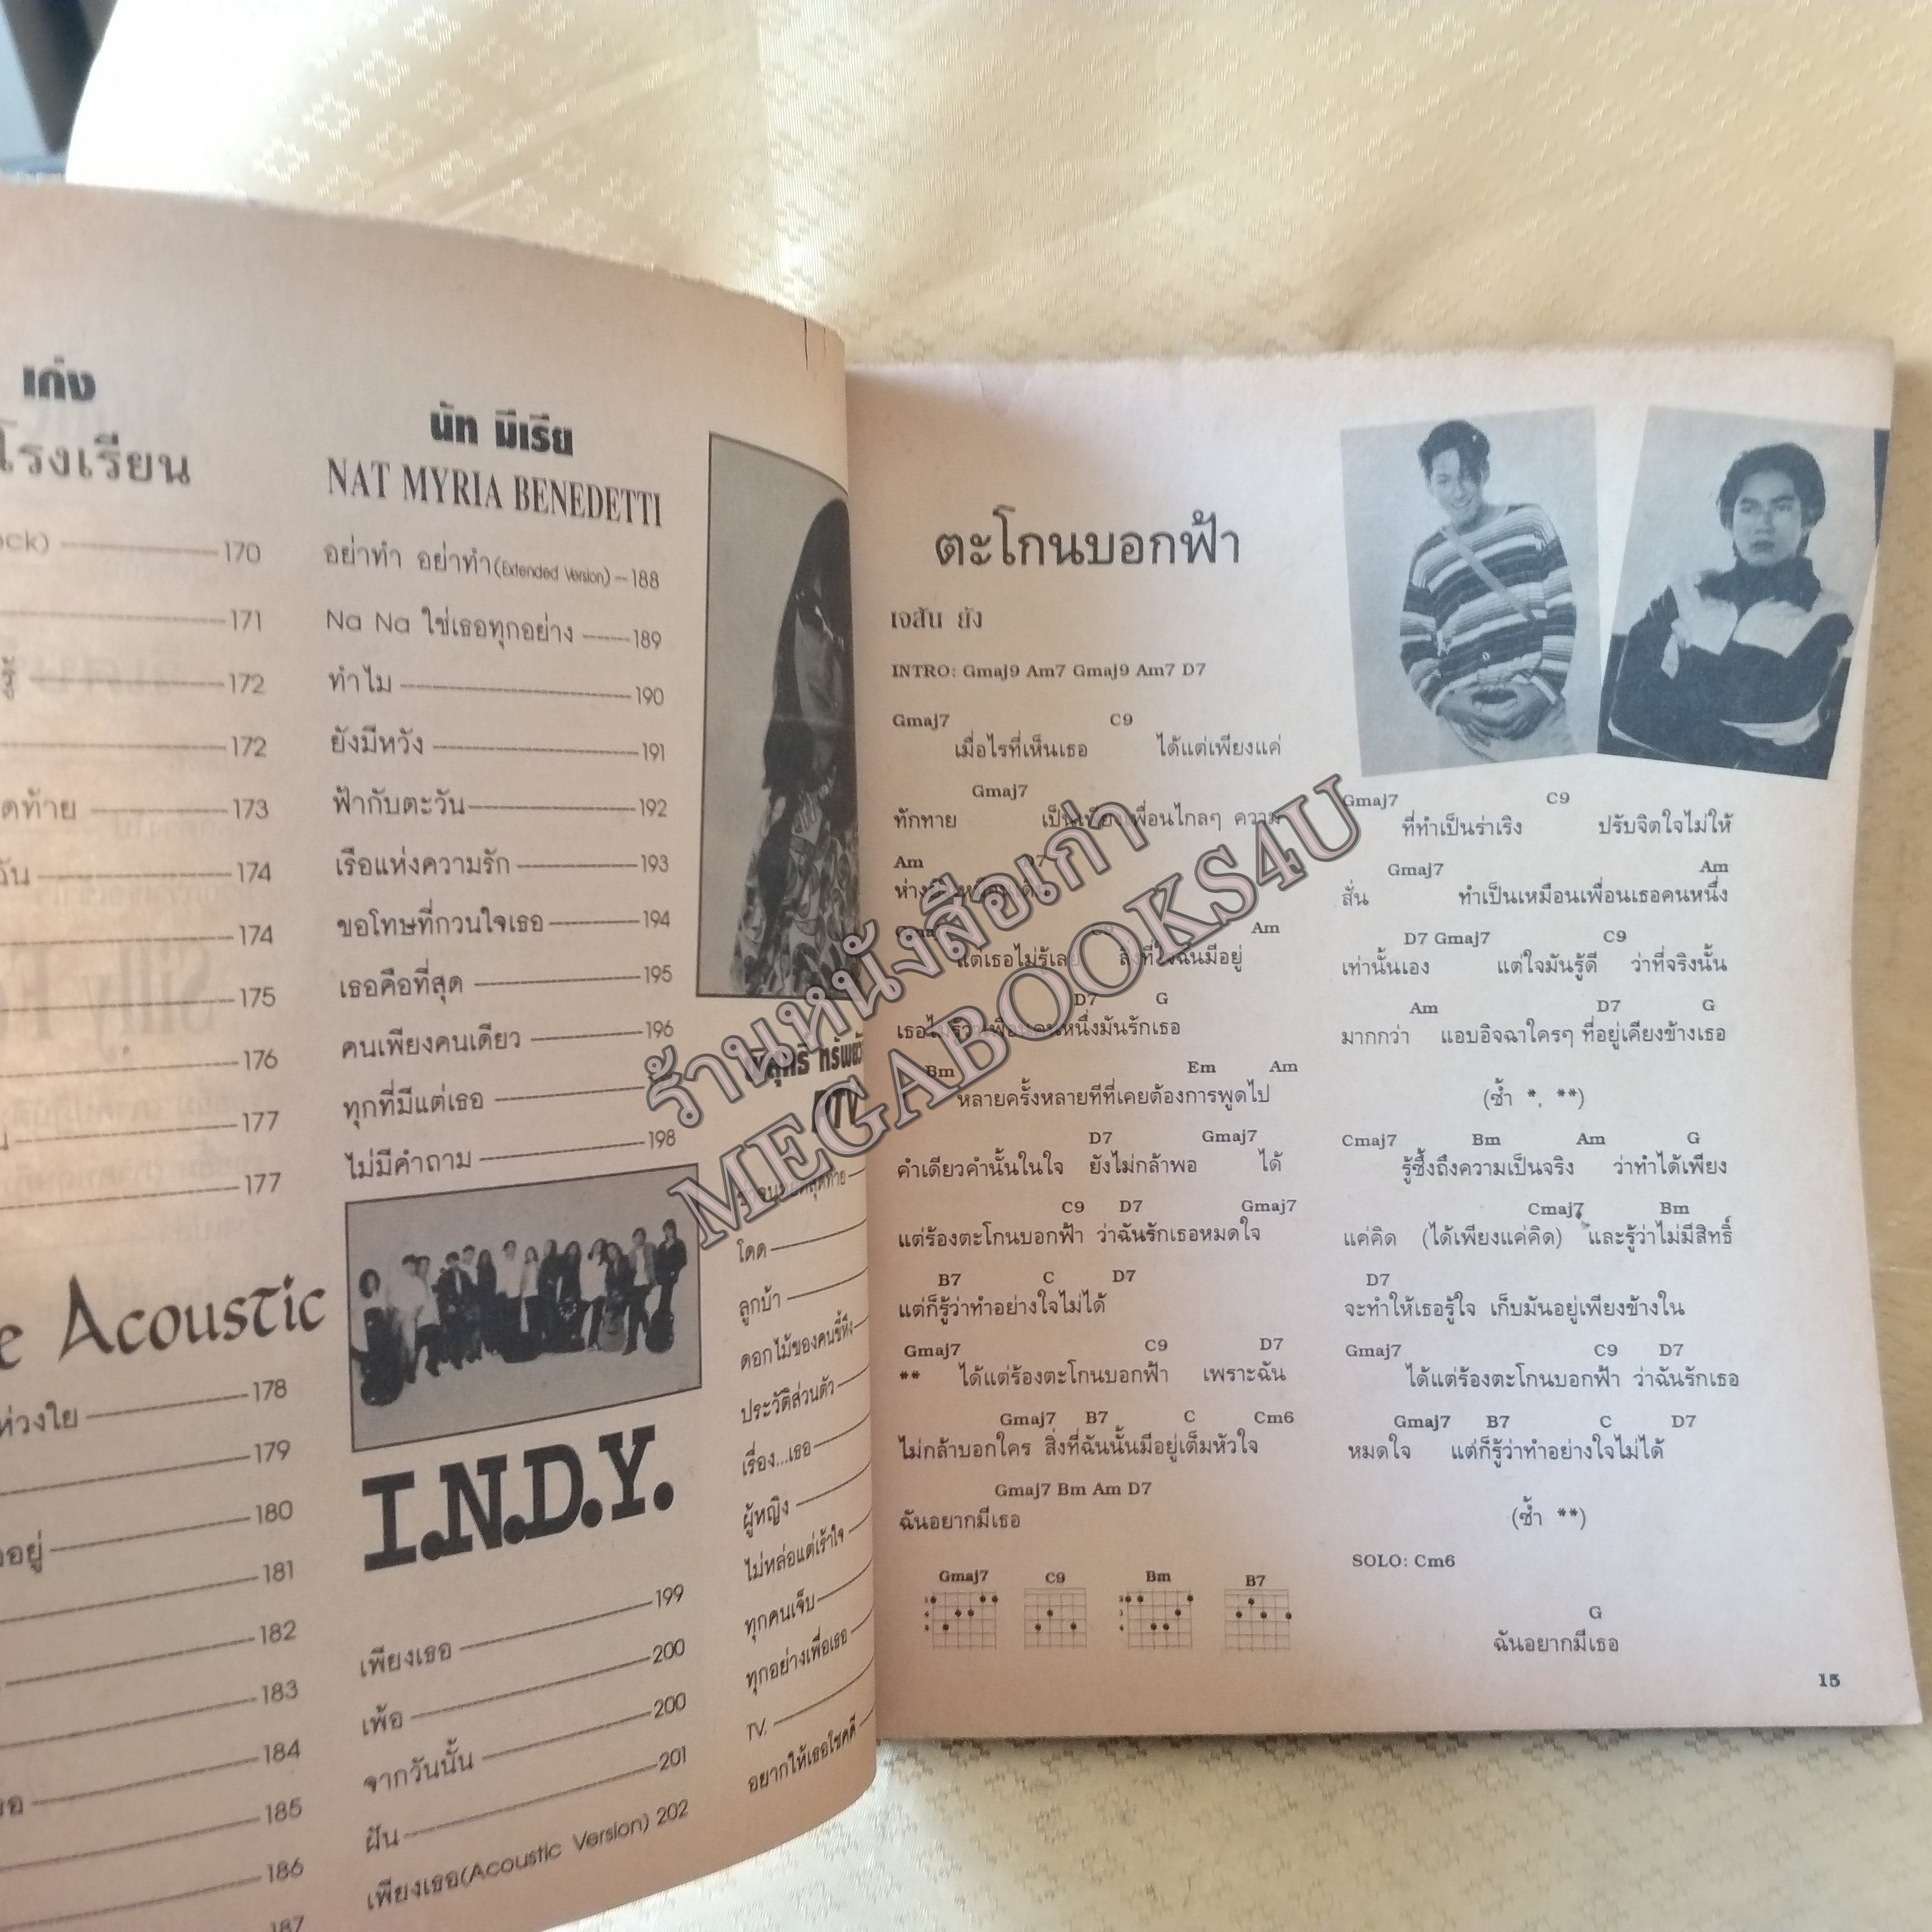 เก๋ง
โรงเรียน
170
171
172
172
173
174
174
175
176
177
177
Acoustic
178
179
180
181
182
183
184
185
186
187
นัท มีเรีย
NAT MYRIA BENEDETTI
อย่าทำ อย่าทำ(Extended Version) 188
Na Na ใช่เธอทุกอย่าง 189
ทำไม 190
ยังมีหวัง 191
ฟ้ากับตะวัน 192
เรือแห่งความรัก 193
ขอโทษที่กวนใจเธอ 194
เธอคือที่สุด 195
คนเพียงคนเดียว 196
ทุกที่มีแต่เธอ
ไม่มีคำถาม 198
I.N.D.Y.
เพียงเธอ 199
เพ้อ 200
จากวันนั้น 200
ฝัน 201
เพียงเธอ(Acoustic Version) 202
โดด
ลูกบ้า
ดอกไม้ของคนขี้หึง
ประวัติส่วนตัว
เรื่อง...เธอ
ผู้หญิง
ไม่หล่อแต่เร้าใจ
ทุกคนเจ็บ
ทุกอย่างเพื่อเธอ
TV.
อยากให้เธอโชคดี
ตะโกนบอกฟ้า
เจสัน ยัง
INTRO: Gmaj9 Am7 Gmaj9 Am7 D7
Gmaj7 C9
เมื่อไรที่เห็นเธอ ได้แต่เพียงแค่
Gmaj7
ทักทาย เป็นเพียงเพื่อนไกลๆ ความ
Am D7
Am
แต่เธอไม่รู้เลย สิ่งที่ใจฉันมีอยู่
D7 G
เธอไม่รู้ว่าเพื่อนคนหนึ่งมันรักเธอ
Bm Em Am
* หลายครั้งหลายทีที่เคยต้องการพูดไป
D7 Gmaj7
คำเดียวคำนั้นในใจ ยังไม่กล้าพอ ได้
C9 D7 Gmaj7
แต่ร้องตะโกนบอกฟ้า ว่าฉันรักเธอหมดใจ
B7 C D7
แต่ก็รู้ว่าทำอย่างใจไม่ได้
Gmaj7 C9 D7
** ได้แต่ร้องตะโกนบอกฟ้า เพราะฉัน
Gmaj7 B7 C Cm6
ไม่กล้าบอกใคร สิ่งที่ฉันนั้นมีอยู่เต็มหัวใจ
Gmaj7 Bm Am D7
ฉันอยากมีเธอ
Gmaj7 C9 Bm B7
Gmaj7 C9
ที่ทำเป็นร่าเริง ปรับจิตใจไม่ให้
Gmaj7 Am
สั่น ทำเป็นเหมือนเพื่อนเธอคนหนึ่ง
D7 Gmaj7 C9
เท่านั้นเอง แต่ใจมันรู้ดี ว่าที่จริงนั้น
Am D7 G
มากกว่า แอบอิจฉาใครๆ ที่อยู่เคียงข้างเธอ
(ซ้ำ *, **)
Cmaj7 Bm Am G
รู้ซึ้งถึงความเป็นจริง ว่าทำได้เพียง
Cmaj7 Bm
แค่คิด (ได้เพียงแค่คิด) และรู้ว่าไม่มีสิทธิ์
D7
จะทำให้เธอรู้ใจ เก็บมันอยู่เพียงข้างใน
Gmaj7 C9 D7
ได้แต่ร้องตะโกนบอกฟ้า ว่าฉันรักเธอ
Gmaj7 B7 C D7
หมดใจ แต่ก็รู้ว่าทำอย่างใจไม่ได้
(ซ้ำ **)
SOLO: Cm6
G
ฉันอยากมีเธอ
15
ร้านหนังสือเก่า
MEGABOOKS4U